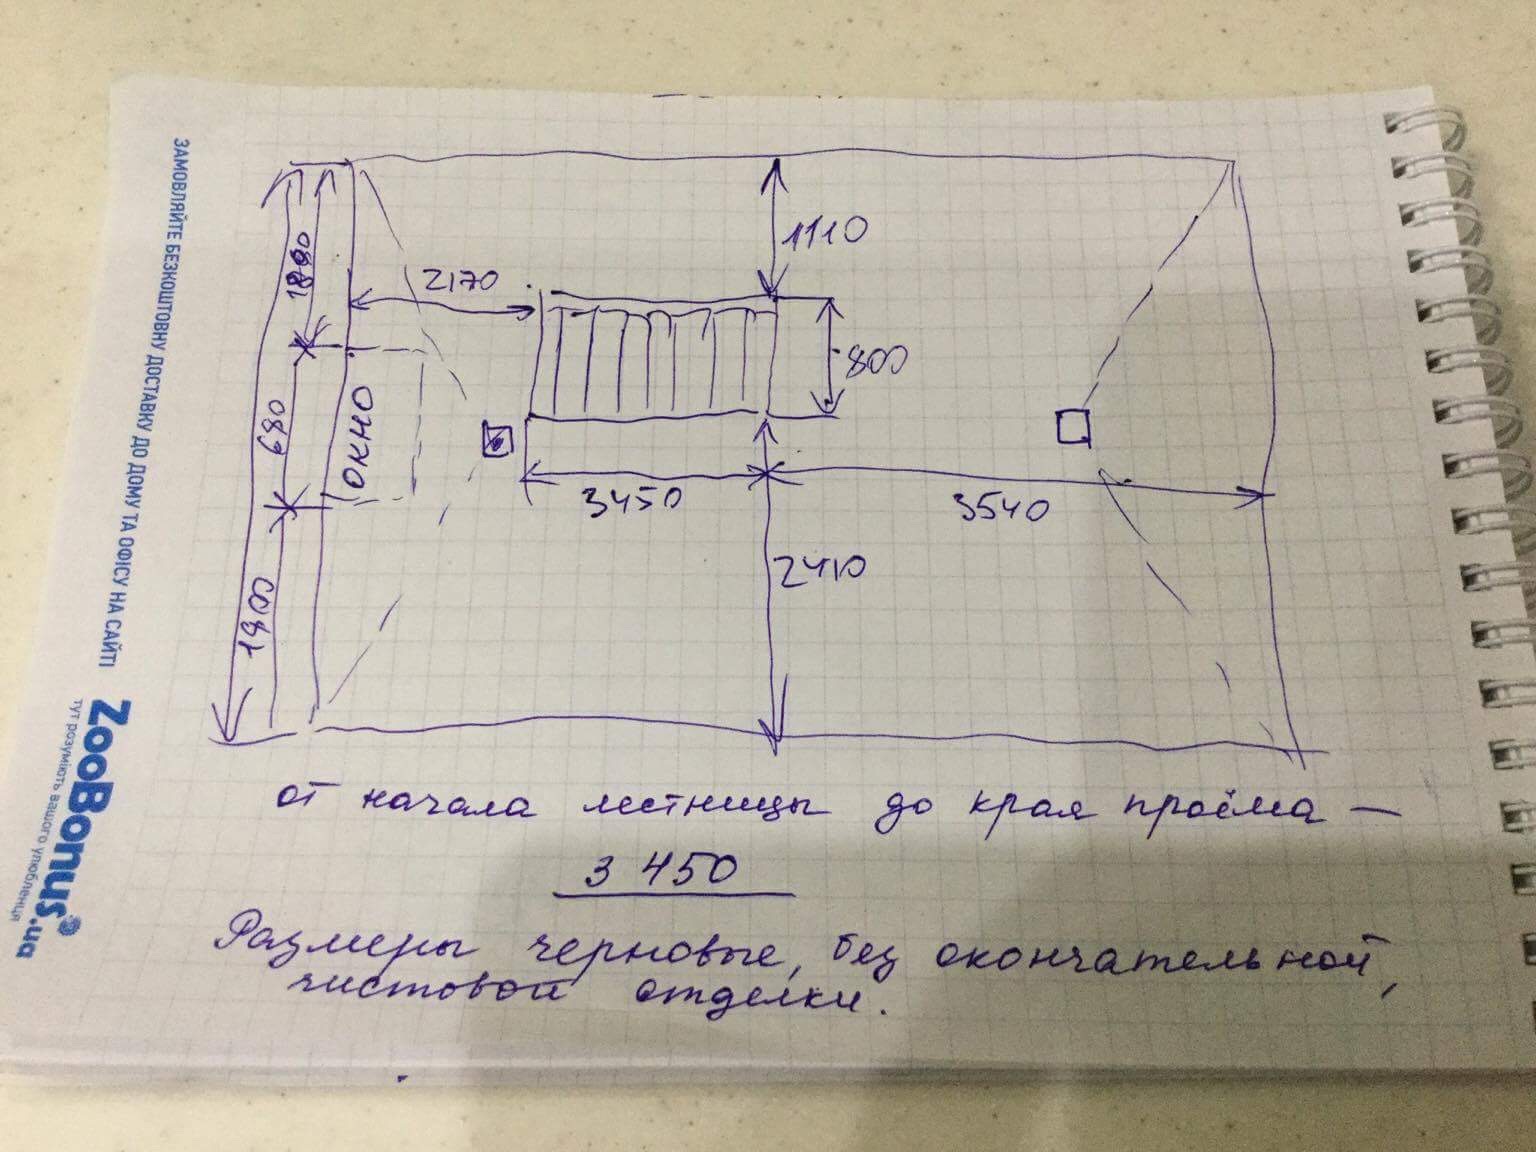 ЗАМОВЛЯЙТЕ БЕЗКОШТОВНУ ДОСТАВКУ ДО ДОМУ ТА ОФІСУ НА САЙТІ
ZooBonus.ua
тут розуміють вашого улюбленця
1110
2170
800
680
ОКНО
3450
3540
2410
от начала лестницы до края проёма —
3 450
Размеры черновые, без окончательной,
чистовой отделки.